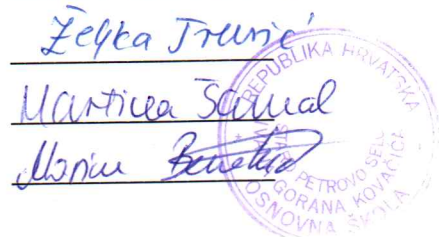 Željka Trusić
Martina Šamal
Marin
REPUBLIKA HRVATSKA
PETROVO SELO
GORANA KOVAČIĆA
OSNOVNA ŠKOLA